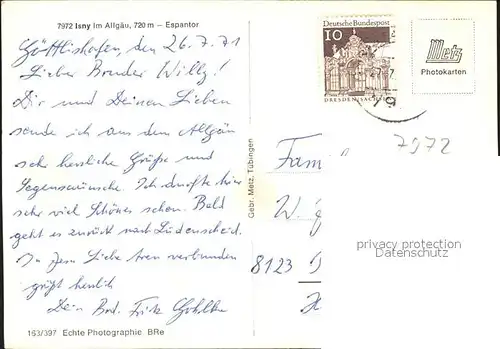 7972 Isny im Allgäu, 720 m – Espantor
Göttlishofen, den 26.7.71
Lieber Bruder Willy!
Dir und Deinen Lieben
sende ich aus dem Allgäu
sehr herzliche Grüße und
Segenswünsche. Ich durfte hier
sehr viel Schönes schon. Bald
geht es zurück nach Lüdenscheid.
In Jesu Liebe verbunden
grüßt herzlich
Dein Brd. Fritz
163/397 Echte Photographie BRe
Gebr. Metz, Tübingen
Deutsche Bundespost
10
DRESDEN/SACHSEN
Metz
Photokarten
7972
Fam
W.
8123
privacy protection
Datenschutz